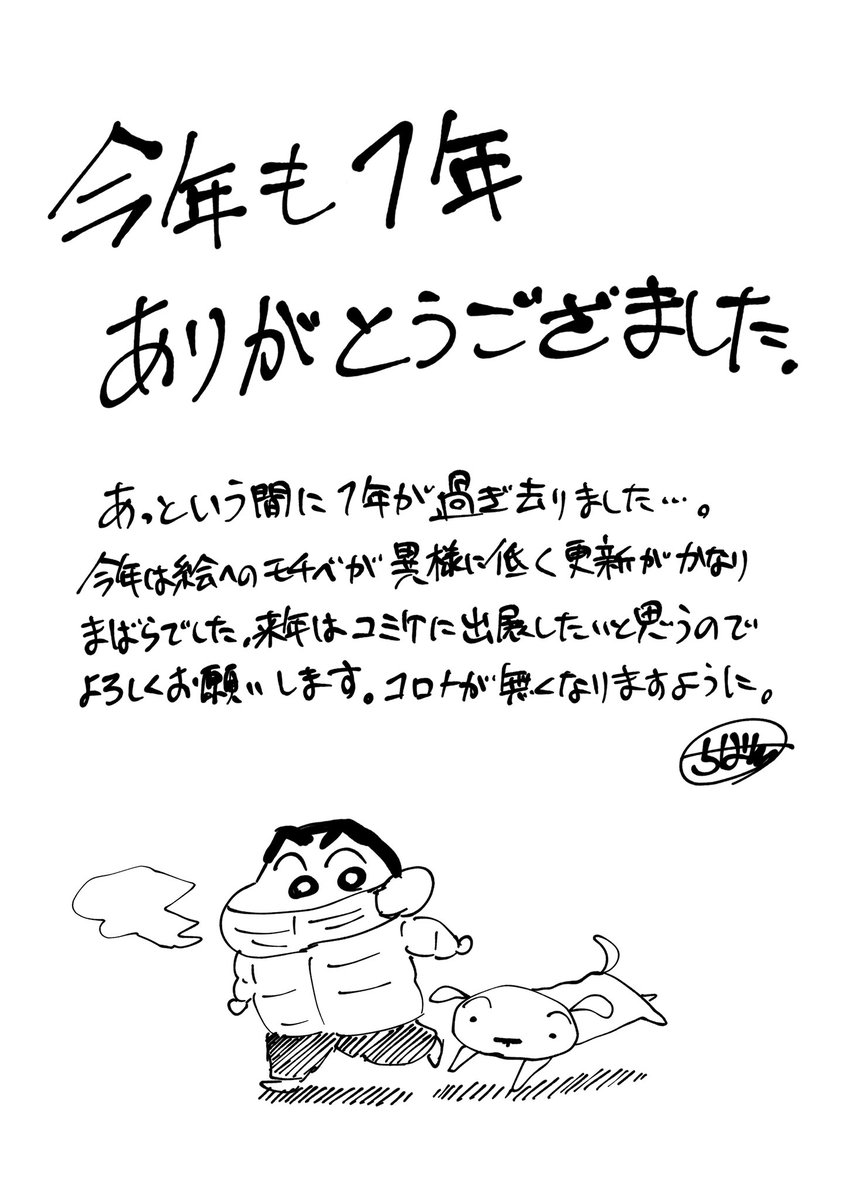 今年も1年
ありがとうござました.
あっという間に1年が過ぎ去りました…。
今年は絵へのモチベが異様に低く更新がかなり
まばらでした.来年はコミケに出展したいと思うので
よろしくお願いします。コロナが無くなりますように。